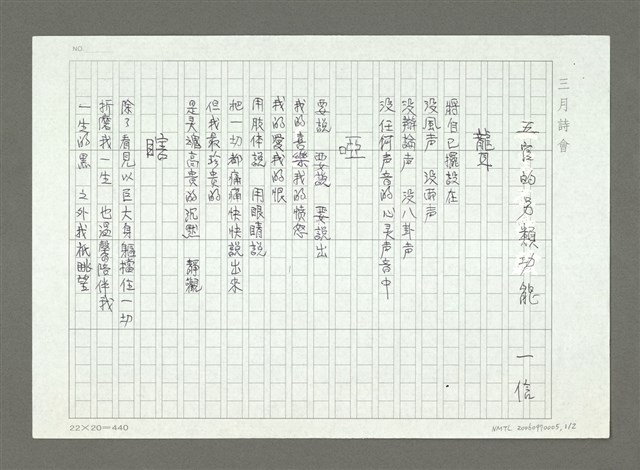 三月詩會
五官的另類功能　一信
聾
將自己擺設在
没風声　没雨声
没辯論声　没八卦声
没任何声音的心灵声音中
啞
要説　要説　要説出
我的喜樂我的憤怒
我的愛我的恨
用肢体説　用眼睛説
把一切都痛痛快快説出來
但我最珍貴的
是灵魂高貴的沉默　靜觀
瞎
除了看見以巨大身軀擋住一切
折磨我一生　也温馨陪伴我
一生的黑　之外我祇眺望
NO.
22×20=440
NMTL 20060990005, 1/2